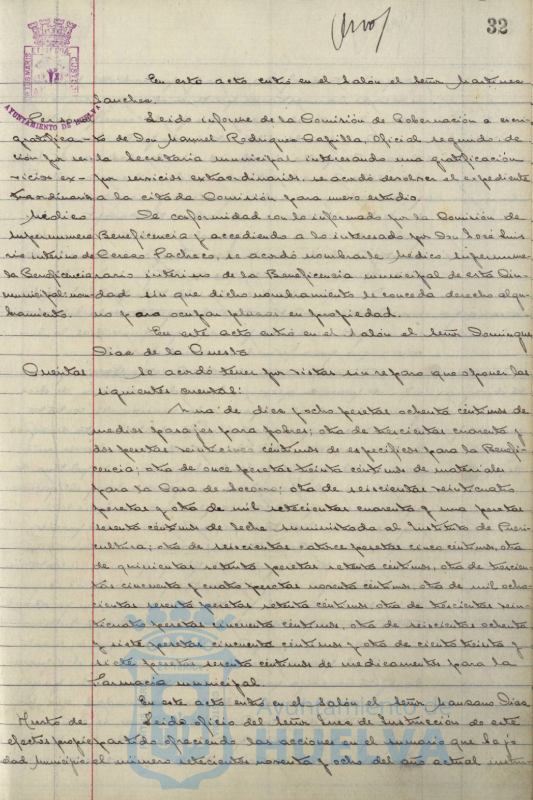 32
AYUNTAMIENTO DE HUELVA
En este acto entró en el Salón el Señor Martinez
Sanchez.
Personal
gratifica-
ción por ser-
vicios ex-
traordinarios
Leido informe de la Comisión de Gobernación a escri-
to de Don Manuel Rodriguez Capilla, Oficial segundo, de
la Secretaria municipal interesando una gratificación
por servicios extraordinarios, se acordó devolver el expediente
a la citada Comisión para nuevo estudio.
Médico
supernumera
rio interino de
la Beneficencia
municipal: nom-
bramiento.
De conformidad con lo informado por la Comisión de
Beneficencia y accediendo a lo interesado por Don José Luis
Cerezo Pacheco, se acordó nombrarle Médico supernume-
rario interino de la Beneficencia municipal de esta Ciu-
dad sin que dicho nombramiento le conceda derecho algu-
no para ocupar plazas en propiedad.
En este acto entró en el Salón el Señor Dominguez
Diaz de la Cuesta
Cuentas
Se acordó tener por vistas sin reparo que oponer las
siguientes cuentas:
Una de diez y ocho pesetas ochenta céntimos de
medios pasajes para pobres; otra de trescientas cuarenta y
dos pesetas veinticinco céntimos de específicos para la Benefi-
cencia; otra de once pesetas treinta céntimos de materiales
para la Casa de Socorro; otra de seiscientas veinticuatro
pesetas y otra de mil setecientas cuarenta y una pesetas
sesenta céntimos de leche suministrada al Instituto de Pueri-
cultura; otra de seiscientas catorce pesetas cinco céntimos, otra
de quinientas setenta pesetas setenta céntimos, otra de trescien-
tas cincuenta y cuatro pesetas noventa céntimos, otra de mil ocho-
cientas sesenta pesetas setenta céntimos, otra de trescientas vein-
ticuatro pesetas cincuenta céntimos, otra de seiscientas ochenta
y siete pesetas cincuenta céntimos y otra de ciento treinta y
siete pesetas sesenta céntimos de medicamentos para la
Farmacia municipal.
En este acto entró en el Salón el Señor Manzano Diaz
Hurto de
efectos propie
dad Municipio
Leido oficio del Señor Juez de Instrucción de este
partido ofreciendo las acciones en el sumario que bajo
el número setecientos noventa y ocho del año actual
Ayuntamiento de
HUELVA